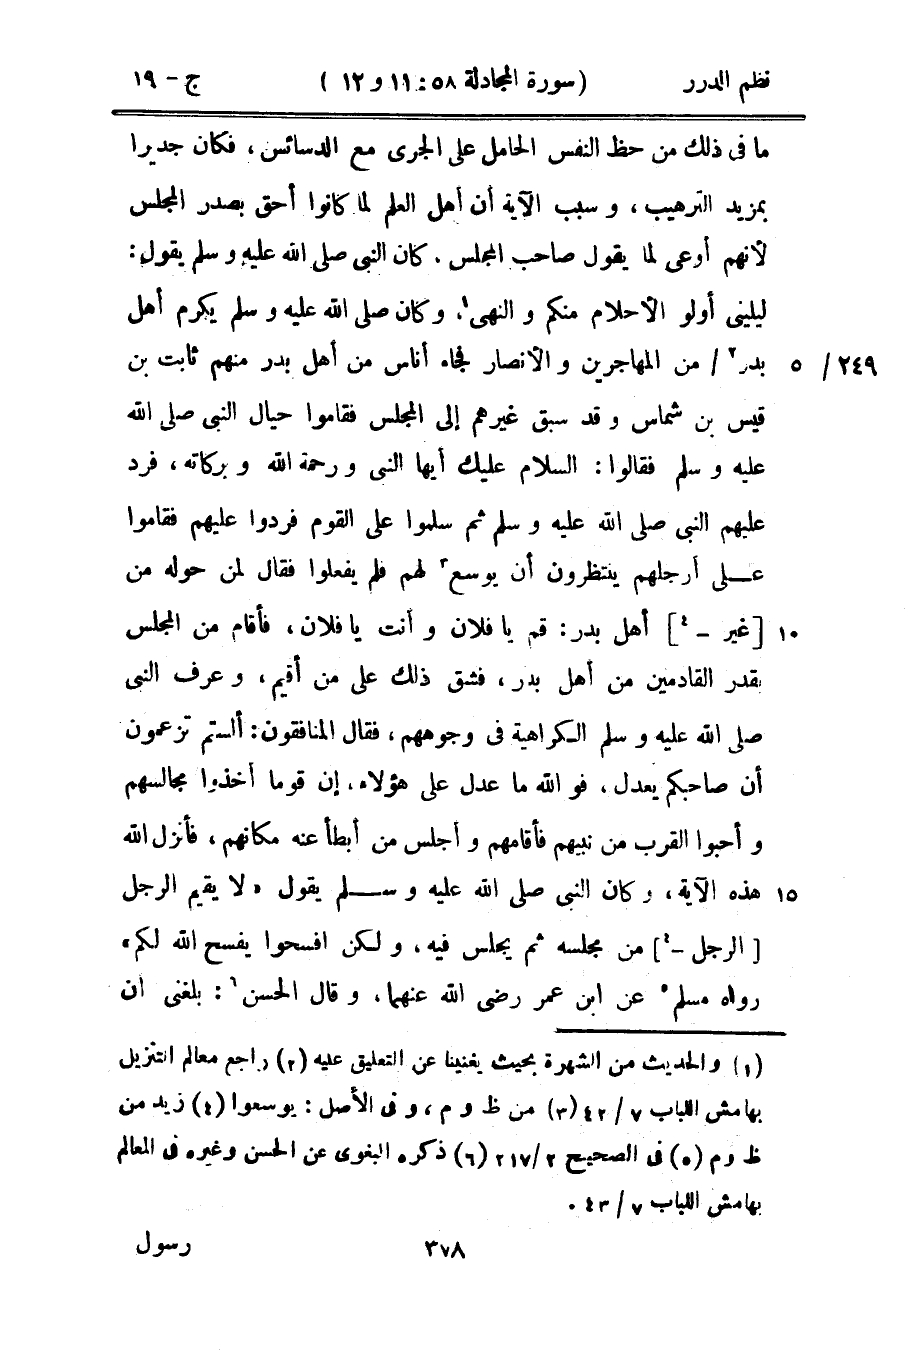 نظم الدرر (سورة المجادلة ٥٨ : ١١ و ١٢ ) ج - ١٩
ما فى ذلك من حظ النفس الحامل على الجرى مع الدسائس ، فكان جديرا
بمزيد الترهيب ، و سبب الآية أن أهل العلم لما كانوا أحق بصدر المجلس
لأنهم أوعى لما يقول صاحب المجلس . كان النبى صلى الله عليه و سلم يقول :
ليلينى أولو الأحلام منكم و النهى١ ، و كان صلى الله عليه و سلم يكرم أهل
٢٤٩ / ٥ بدر٢ / من المهاجرين و الأنصار فجاء أناس من أهل بدر منهم ثابت بن
قيس بن شماس و قد سبق غيرهم إلى المجلس فقاموا حيال النبى صلى الله
عليه و سلم فقالوا : السلام عليك أيها النبى و رحمة الله و بركاته ، فرد
عليهم النبى صلى الله عليه و سلم ثم سلموا على القوم فردوا عليهم فقاموا
عـــلى أرجلهم ينتظرون أن يوسع٣ لهم فلم يفعلوا فقال لمن حوله من
١٠ [ غير - ٤ ] أهل بدر : قم يا فلان و أنت يا فلان ، فأقام من المجلس
بقدر القادمين من أهل بدر ، فشق ذلك على من أقيم ، و عرف النبى
صلى الله عليه و سلم الكراهية فى وجوههم ، فقال المنافقون : ألستم تزعمون
أن صاحبكم يعدل ، فو الله ما عدل على هؤلاء . إن قوما أخذوا مجالسهم
و أحبوا القرب من نبيهم فأقامهم و أجلس من أبطأ عنه مكانهم ، فأنزل الله
١٥ هذه الآية ، و كان النبى صلى الله عليه و ســـلم يقول « لا يقيم الرجل
[ الرجل - ٤ ] من مجلسه ثم يجلس فيه ، و لكن افسحوا يفسح الله لكم »
رواه مسلم٥ عن ابن عمر رضى الله عنهما ، و قال الحسن٦ : بلغنى أن
(١) و الحديث من الشهرة بحيث يغنينا عن التعليق عليه (٢) راجع معالم التنزيل
بهامش اللباب ٧ / ٤٢ (٣) من ظ و م ، و فى الأصل : يوسعوا (٤) زيد من
ظ و م (٥) فى الصحيح ٢ / ٢١٧ (٦) ذكره البغوى عن الحسن و غيره فى المعالم
بهامش اللباب ٧ / ٤٣ .
٣٧٨ رسول